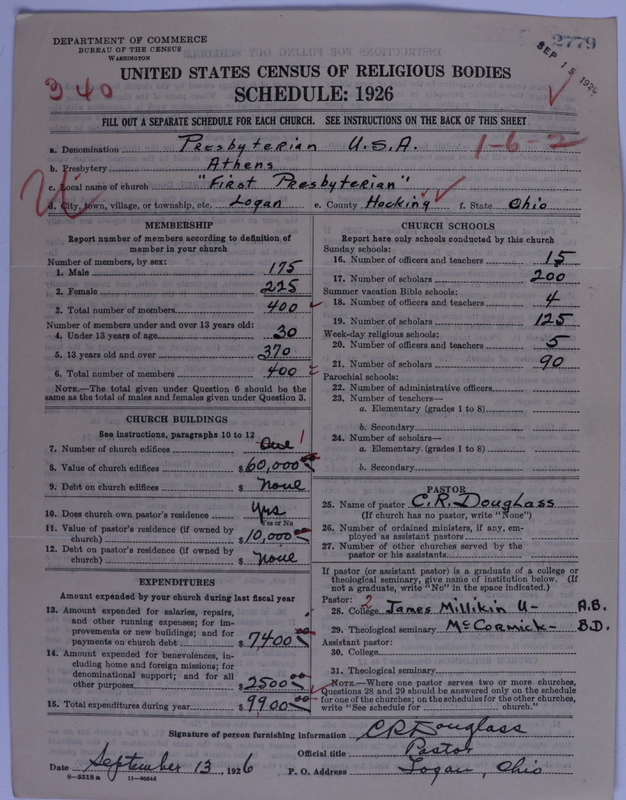 DEPARTMENT OF COMMERCE
BUREAU OF THE CENSUS
WASHINGTON
2779
SEP 15 1926
340
UNITED STATES CENSUS OF RELIGIOUS BODIES
SCHEDULE: 1926
FILL OUT A SEPARATE SCHEDULE FOR EACH CHURCH. SEE INSTRUCTIONS ON THE BACK OF THIS SHEET
a. Denomination Presbyterian U.S.A. 1-6-2
b. Presbytery Athens
c. Local name of church "First Presbyterian"
d. City, town, village, or township, etc. Logan e. County Hocking f. State Ohio
MEMBERSHIP
Report number of members according to definition of
member in your church
Number of members, by sex:
1. Male 175
2. Female 225
3. Total number of members 400
Number of members under and over 13 years old:
4. Under 13 years of age 30
5. 13 years old and over 370
6. Total number of members 400
NOTE.—The total given under Question 6 should be the
same as the total of males and females given under Question 3.
CHURCH BUILDINGS
See instructions, paragraphs 10 to 12
7. Number of church edifices One 1
8. Value of church edifices $60,000 00
9. Debt on church edifices $ None
10. Does church own pastor's residence Yes
Yes or No
11. Value of pastor's residence (if owned by
church) $10,000 00
12. Debt on pastor's residence (if owned by
church) $ None
EXPENDITURES
Amount expended by your church during last fiscal year
13. Amount expended for salaries, repairs,
and other running expenses; for im-
provements or new buildings; and for
payments on church debt $7400 00
14. Amount expended for benevolences, in-
cluding home and foreign missions; for
denominational support; and for all
other purposes $2500 00
15. Total expenditures during year $9900 00
CHURCH SCHOOLS
Report here only schools conducted by this church
Sunday schools:
16. Number of officers and teachers 15
17. Number of scholars 200
Summer vacation Bible schools:
18. Number of officers and teachers 4
19. Number of scholars 125
Week-day religious schools:
20. Number of officers and teachers 5
21. Number of scholars 90
Parochial schools:
22. Number of administrative officers
23. Number of teachers—
a. Elementary (grades 1 to 8)
b. Secondary
24. Number of scholars—
a. Elementary (grades 1 to 8)
b. Secondary
PASTOR
25. Name of pastor C.R. Douglass
(If church has no pastor, write "None")
26. Number of ordained ministers, if any, em-
ployed as assistant pastors
27. Number of other churches served by the
pastor or his assistants
If pastor (or assistant pastor) is a graduate of a college or
theological seminary, give name of institution below. (If
not a graduate, write "No" in the space indicated.)
Pastor: 2
28. College James Millikin U- A.B.
29. Theological seminary McCormick- B.D.
Assistant pastor:
30. College
31. Theological seminary
NOTE.—Where one pastor serves two or more churches,
Questions 28 and 29 should be answered only on the schedule
for one of the churches; on the schedules for the other churches,
write "See schedule for church."
Signature of person furnishing information CR Douglass
Official title Pastor
Date September 13, 1926 P. O. Address Logan, Ohio
8—5518 a